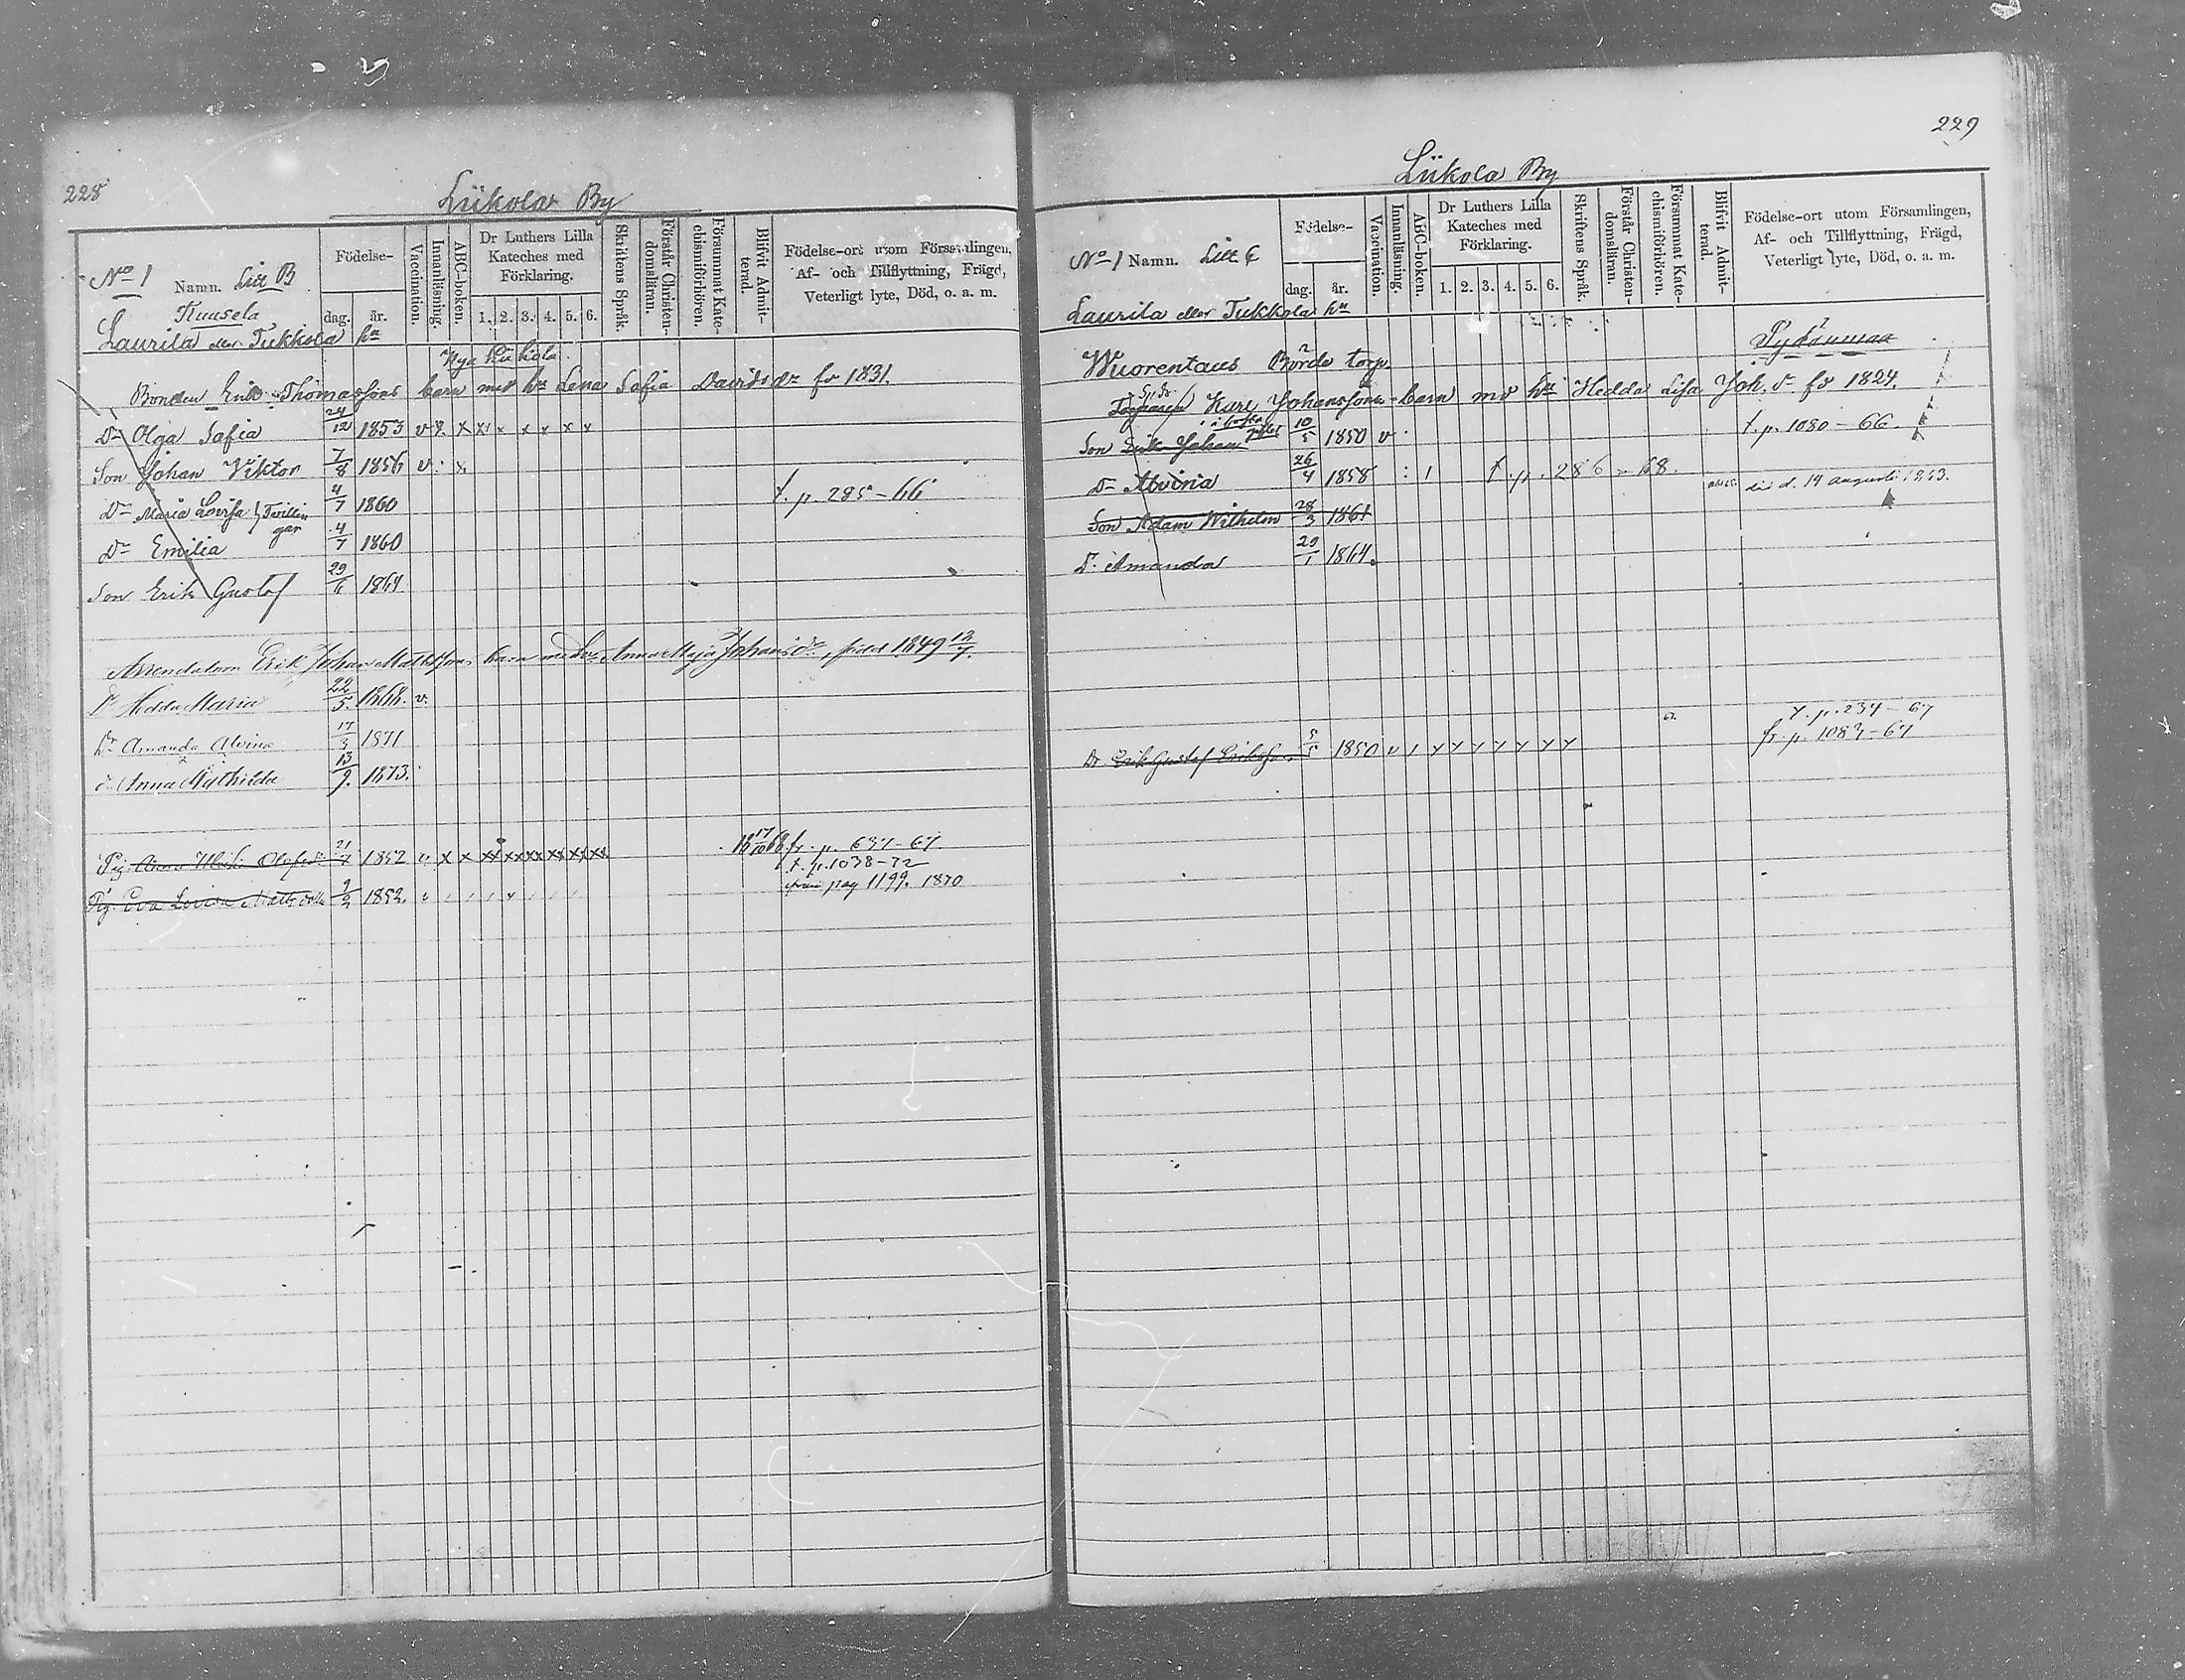 228
Liikola By
No 1 Namn. Litt B
Kuusela
Laurila eller Tukkola hn
Födelse-
dag. år.
Vaccination.
Innanläsning.
ABC-boken.
Dr Luthers Lilla
Kateches med
Förklaring.
1. 2. 3. 4. 5. 6.
Skriftens Språk.
Förstår Christen-
domsläran.
Försummat Kate-
chismiförhören.
Blifvit Admit-
terad.
Födelse-ort utom Församlingen,
Af- och Tillflyttning, Frägd,
Veterligt lyte, Död, o. a. m.
Nya
Bonden Erik Thomassons barn med h. Lena Safia Davidsdr fo 1831.
Dr Olga Safia 24/12 1853 v x x x x x x x x
Son Johan Viktor 7/8 1856 v x
Dr Maria Lovisa } Tvillin 4/7 1860 t. p. 285-66
gar
Dr Emilia 4/7 1860
Son Erik Gustaf 29/6 1864
Arrendatorn Erik Johan Mattssons barn med Anna Maja Johansdr, född 1849 12/7.
Dr Hedda Maria 22/5 1868. v.
Dr Amanda Alvina 17/3 1871
dr Anna Mathilda 13/9. 1873.
Pig. Anna Olofsdr 21/7 1852 v x x xx xx xx xx xx xx 18 17/10 68 fr. p. 637-67
t. p. 1038-72
Pig. Eva Lovisa Matts 9/2 1852. från pag 1199. 1870
229
Liikola By
No 1 Namn. Litt C
Laurila eller Tukkola hn
Födelse-
dag. år.
Vaccination.
Innanläsning.
ABC-boken.
Dr Luthers Lilla
Kateches med
Förklaring.
1. 2. 3. 4. 5. 6.
Skriftens Språk.
Förstår Christen-
domsläran.
Försummat Kate-
chismiförhören.
Blifvit Admit-
terad.
Födelse-ort utom Församlingen,
Af- och Tillflyttning, Frägd,
Veterligt lyte, Död, o. a. m.
Wuorentaus torp.
Karl Johanssons barn md hu Hedda Lisa Joh. dr fo 1824.
Son Erik Johan 10/5 1850 v t. p. 1080-66.
Dr Alvina 26/4 1858 : 1 t. p. 286-68.
Son Adam Wilhelm 28/3 1861 död d. 14 augusti 1863.
D. Amanda 29/1 1864.
t. p. 234-67
Dr. Erik Gustaf Eriksson 5/5 1850 v 1 y y y y y y y fr. p. 1083-67